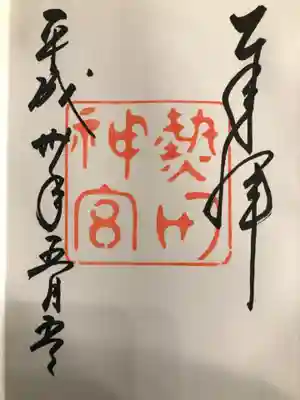 奉拝
熱田
神宮
平成卅年五月五日